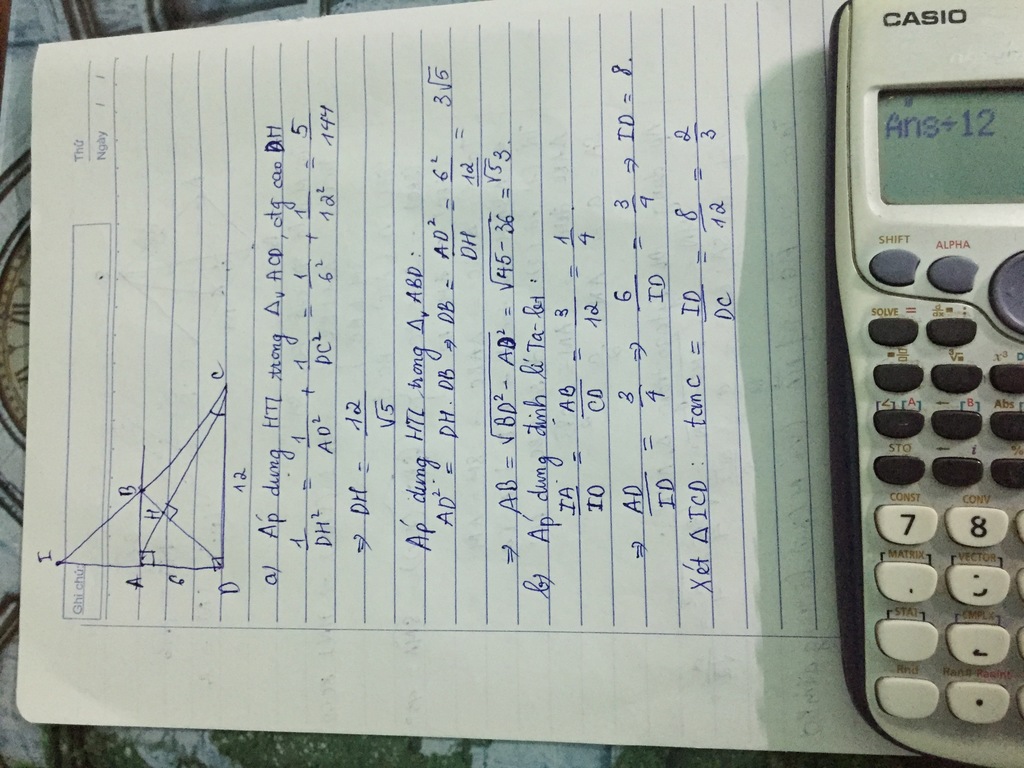 Thứ
Ngày / /
Ghi chú:
I
A
B
H
6
D
12
C
a) Áp dụng HTL trong Δv ACD, đg cao DH
1/DH² = 1/AD² + 1/DC² = 1/6² + 1/12² = 5/144
⇒ DH = 12/√5
Áp dụng HTL trong Δv ABD:
AD² = DH.DB ⇒ DB = AD²/DH = 6²/12/√5 = 3√5
⇒ AB = √BD² - AD² = √45-36 = 3.
b) Áp dụng định lí Ta-let:
IA/ID = AB/CD = 3/12 = 1/4
⇒ AD/ID = 3/4 ⇒ 6/ID = 3/4 ⇒ ID = 8.
Xét ΔICD: tan C = ID/DC = 8/12 = 2/3
CASIO
Ans÷12
SHIFT
ALPHA
SOLVE =
x³
[A]
[B]
Abs
STO
←
i
%
CONST
CONV
7
8
MATRIX
VECTOR
STAT
CMPLX
Rnd